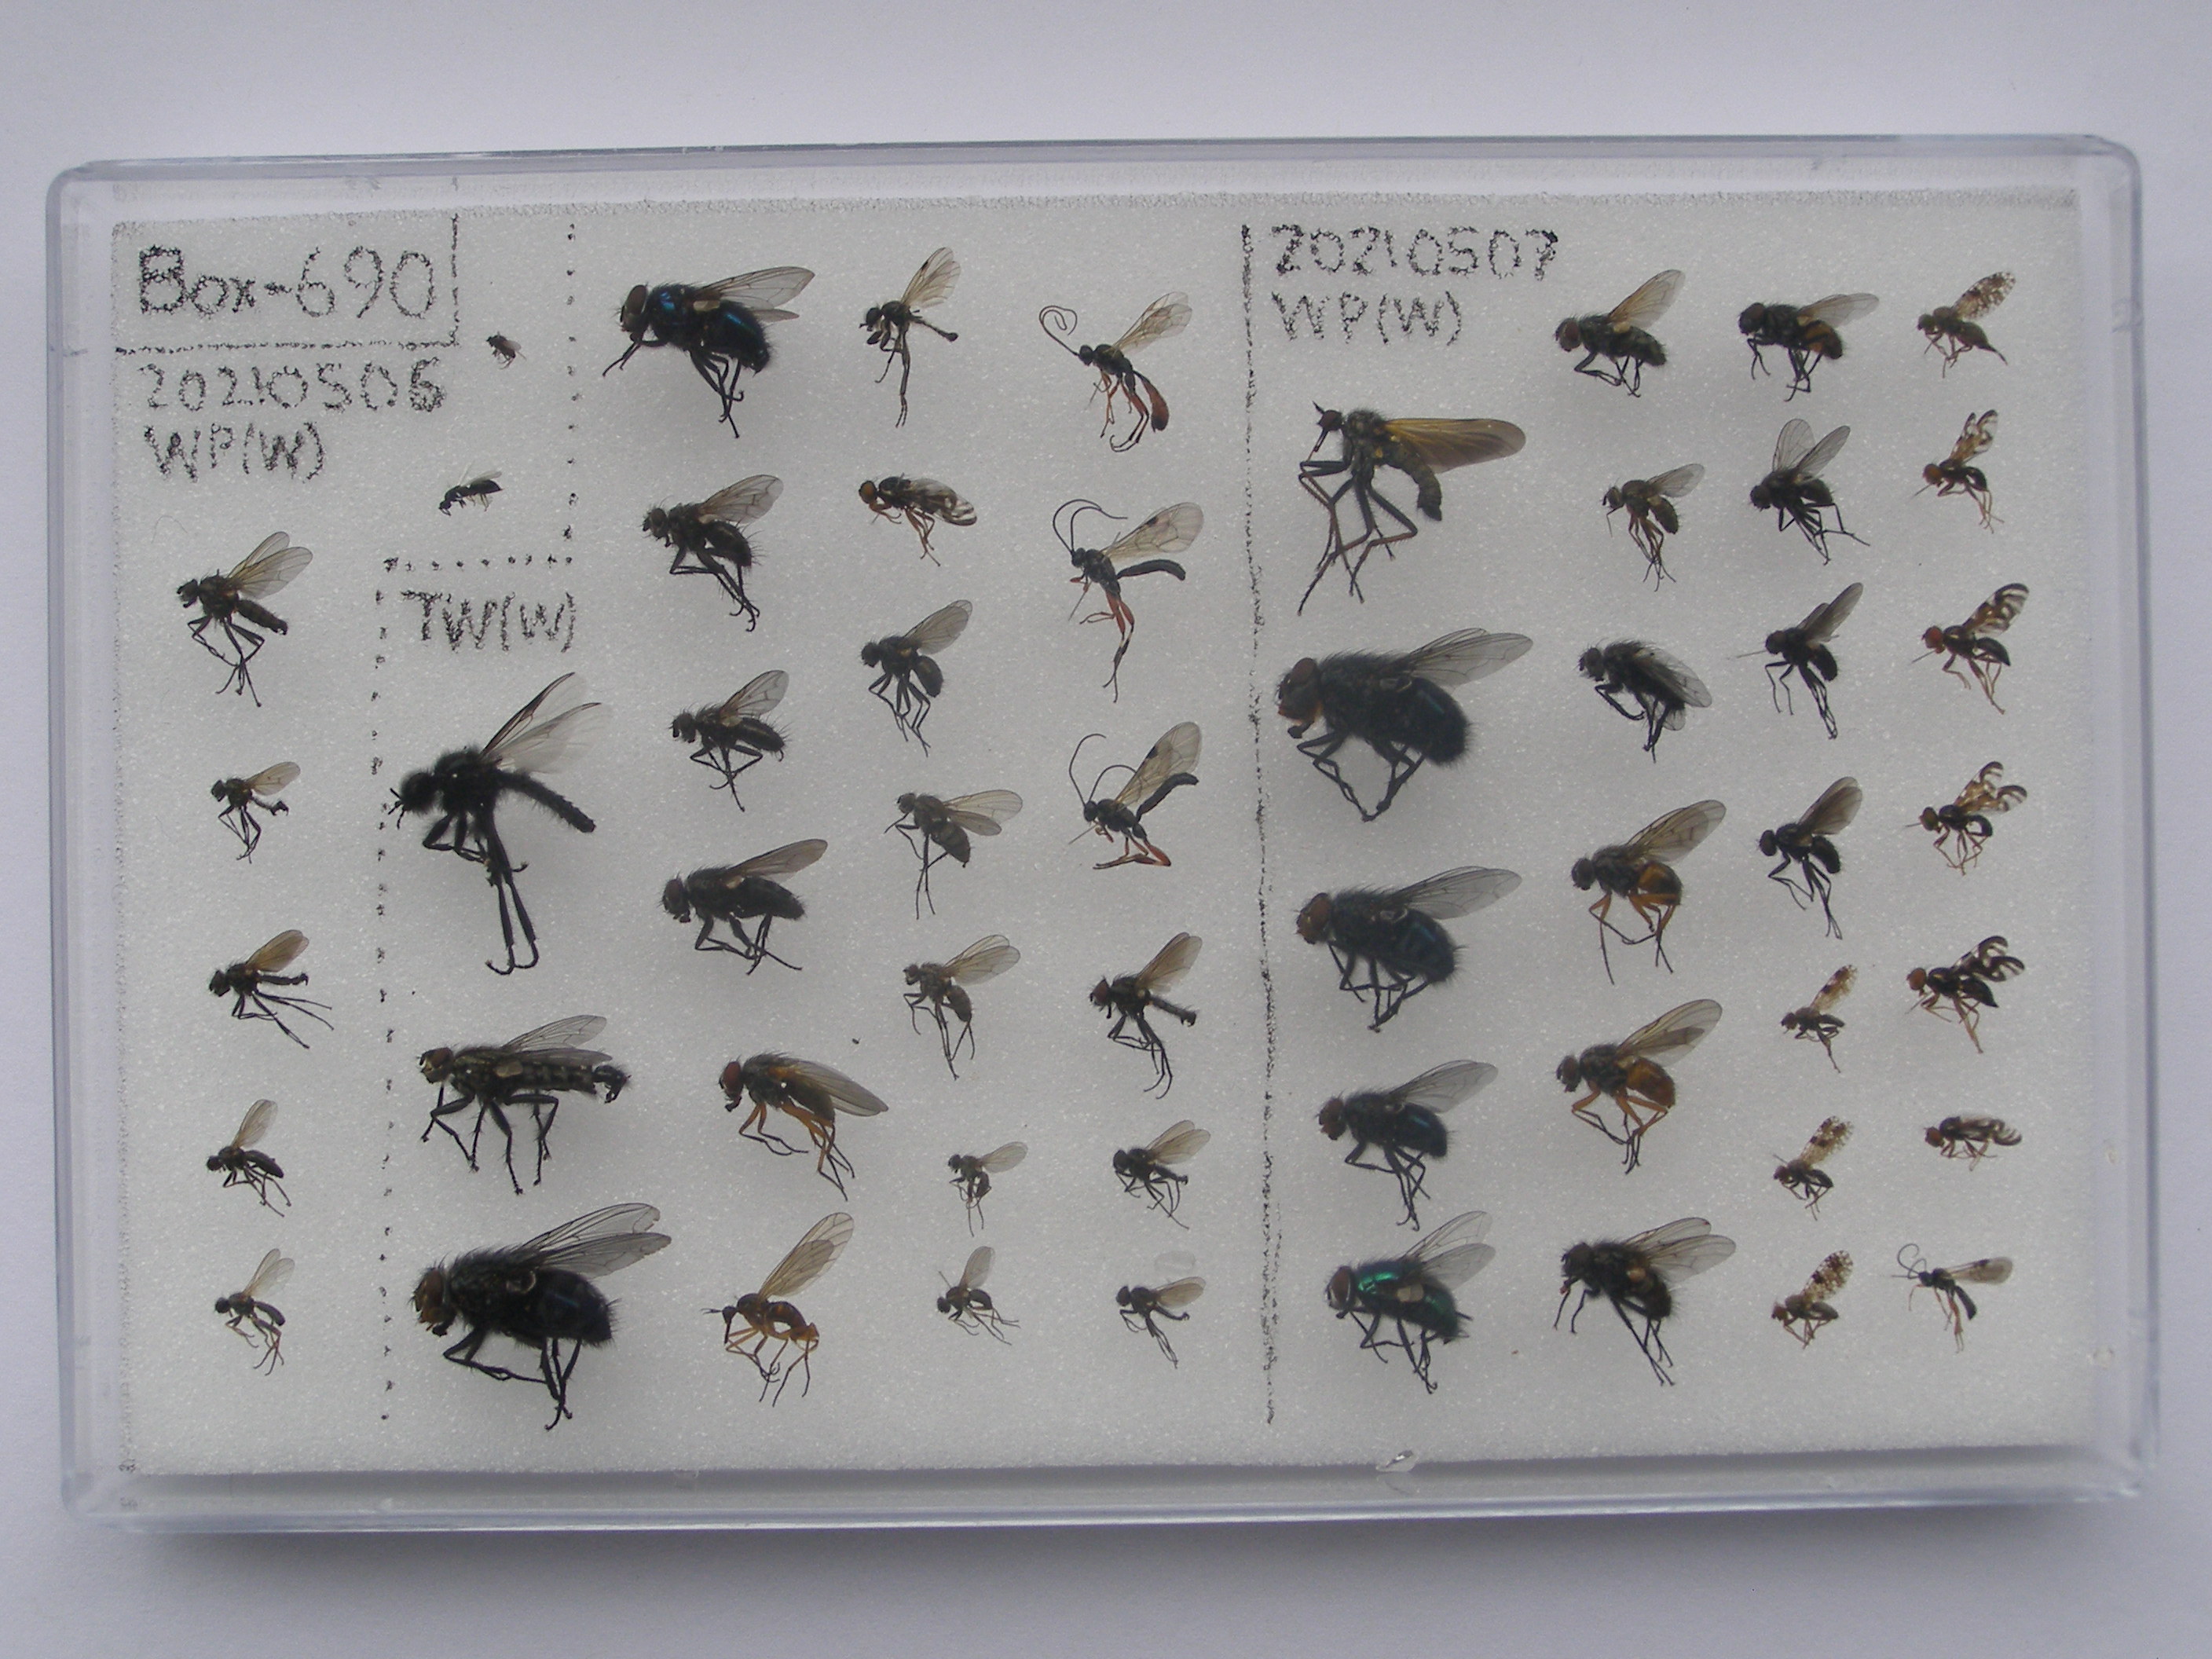 Box-690
20210506
WP(W)
TW(W)
20210507
WP(W)